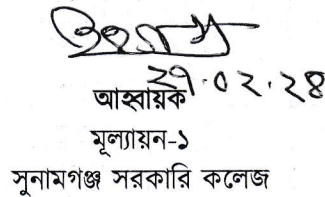 ২৭.০২.২৪
আহ্বায়ক
মূল্যায়ন-১
সুনামগঞ্জ সরকারি কলেজ